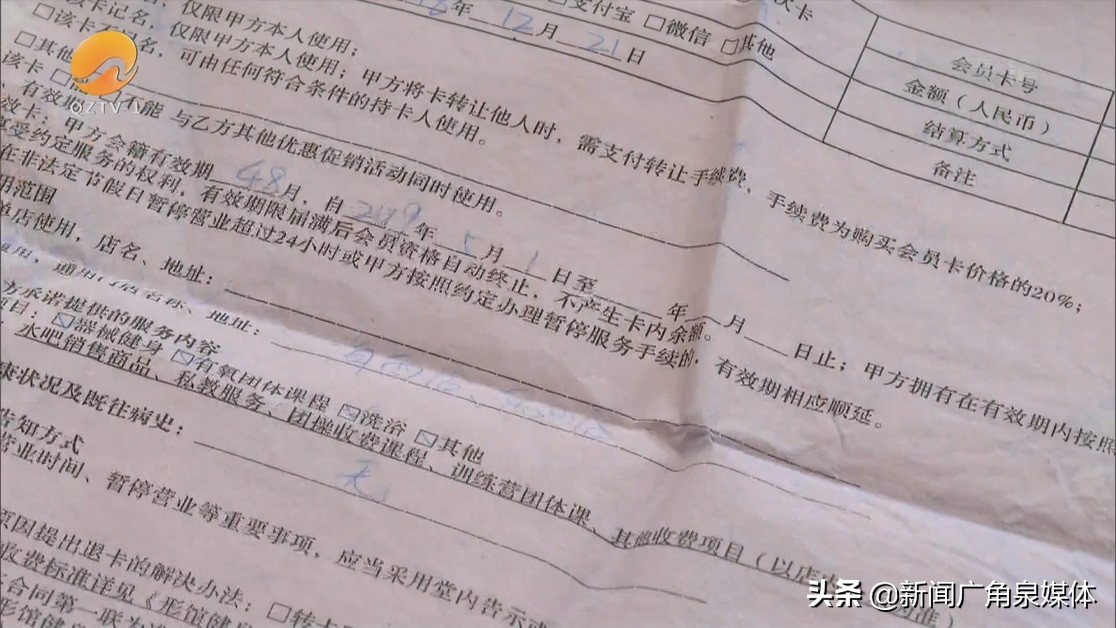 年 12 月 21 日
□支付宝 □微信 □其他
次卡
会员卡号
金额（人民币）
结算方式
备注
该卡记名，仅限甲方本人使用；
□该卡记名，仅限甲方本人使用；甲方将卡转让他人时，需支付转让手续费，手续费为购买会员卡价格的20%；
可由任何符合条件的持卡人使用。
□其他
该卡
不能 与乙方其他优惠促销活动同时使用。
甲方会籍有效期 48 月，自 年 月 1 日至 年 月 日止；甲方拥有在有效期内按照
享受约定服务的权利，有效期限届满后会员资格自动终止，不产生卡内余额。
在非法定节假日暂停营业超过24小时或甲方按照约定办理暂停服务手续的，有效期相应顺延。
用范围
单店使用，店名、地址：
通用，通用门店名称、地址：
方承诺提供的服务内容
项目：☑器械健身 ☑有氧团体课程 ☑洗浴 ☑其他
水吧销售商品、私教服务、团操收费课程、训练营团体课、其他收费项目（以店内
康状况及既往病史： 无
告知方式
营业时间、暂停营业等重要事项，应当采用堂内告示或
原因提出退卡的解决办法：□转卡
收费标准详见《形馆健身
本合同第一联为
形馆健身
QZTV-1
头条 @新闻广角泉媒体